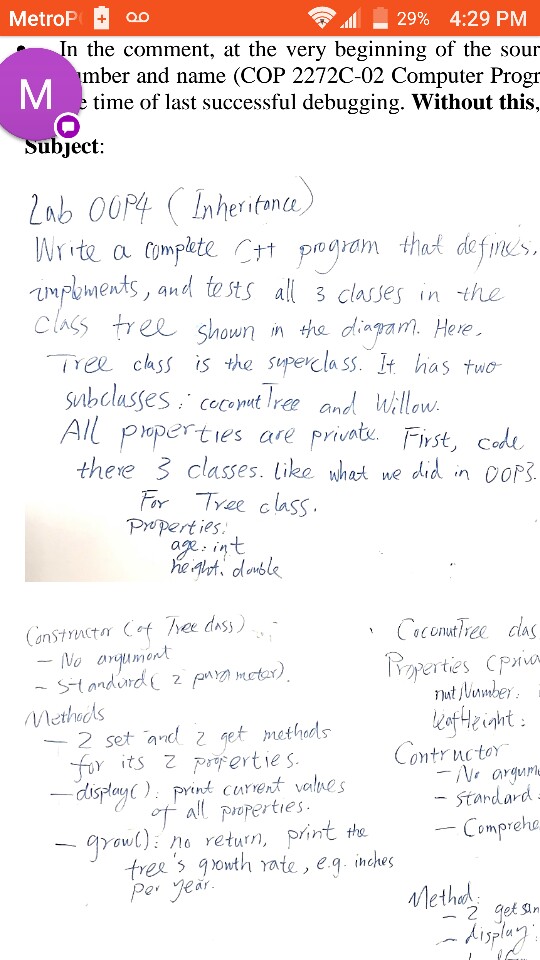 MetroP 29% 4:29 PM
In the comment, at the very beginning of the sour
mber and name (COP 2272C-02 Computer Progr
M
e time of last successful debugging. Without this,
Subject:
Lab OOP4 (Inheritance)
Write a complete C++ program that defines,
implements, and tests all 3 classes in the
class tree shown in the diagram. Here,
Tree class is the superclass. It has two
subclasses: coconutTree and Willow.
All properties are private. First, code
there 3 classes. like what we did in OOP3.
For Tree class.
Properties:
age: int
height: double
Constructor (of Tree class)
- No argument
- Standard (2 parameter).
Methods
- 2 set and 2 get methods
for its 2 properties.
- display(): print current values
of all properties.
- grow(): no return, print the
tree's growth rate, e.g. inches
per year.
CoconutTree clas
Properties (priva
nutNumber:
leafHeight:
Contructor
- No argum
- Standard
- Comprehe
Method:
- 2 get
- display: